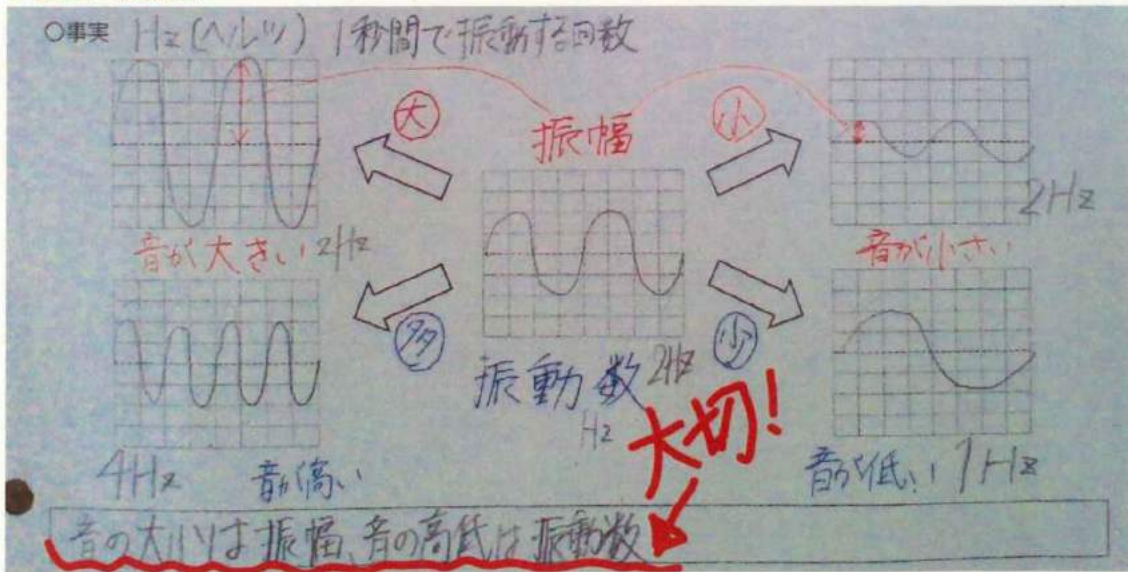 ○事実 Hz(ヘルツ) 1秒間で振動する回数
大
振幅
小
音が大きい 2Hz
2Hz
音が小さい
多
振動数 2Hz
Hz
少
大切!
4Hz 音が高い
音が低い 1Hz
音の大小は振幅、音の高低は振動数